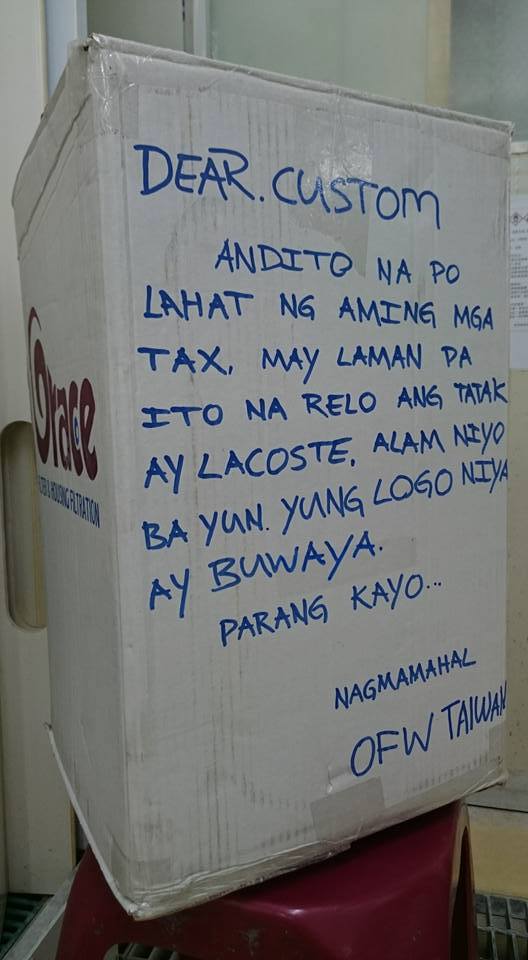 DEAR. CUSTOM
ANDITO NA PO
LAHAT NG AMING MGA
TAX. MAY LAMAN PA
ITO NA RELO ANG TATAK
AY LACOSTE. ALAM NIYO
BA YUN. YUNG LOGO NIYA
AY BUWAYA.
PARANG KAYO...
NAGMAMAHAL
OFW TAIWAN
Grace
& HOUSING FILTRATION